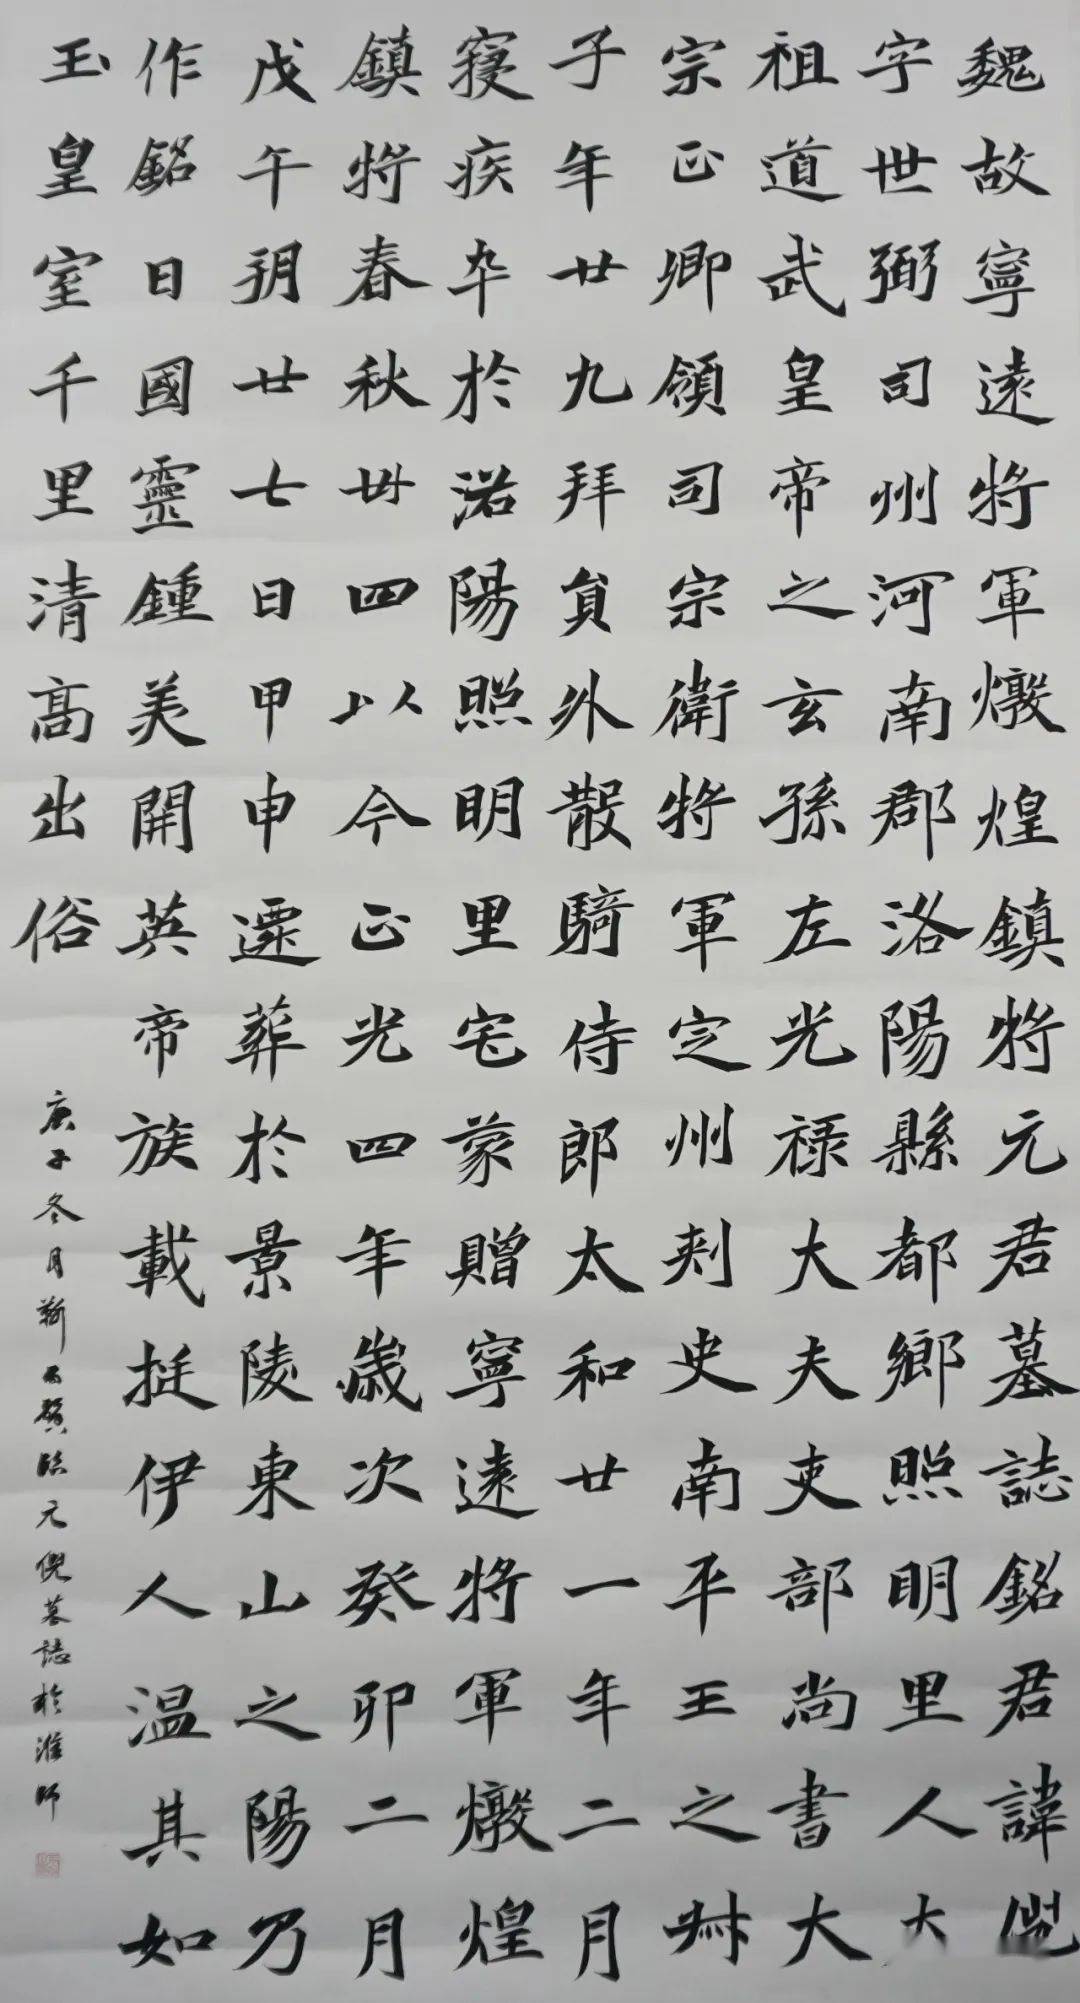 魏故寧遠將軍燉煌鎮將元君墓誌銘君諱倪
字世弼司州河南郡洛陽縣都鄉照明里人大
祖道武皇帝之玄孫左光祿大夫吏部尚書大
宗正卿領司宗衛將軍定州刺史南平王之叔
子年廿九拜員外散騎侍郎太和廿一年二月
寢疾卒於洛陽照明里宅蒙贈寧遠將軍燉煌
鎮將春秋卌四以今正光四年歲次癸卯二月
戊午朔廿七日甲申遷葬於景陵東山之陽乃
作銘曰國靈鍾美開英帝族載挺伊人温其如
玉皇室千里清高出俗
庚子冬月靳臨元倪墓誌於淮師